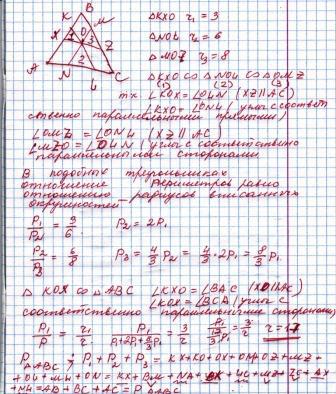 B
K M
X O Z
1 3
A 2 C
N Ц
ΔKXO r₁ = 3
ΔNOЦ r₂ = 6
ΔMOZ r₃ = 8
ΔKXO ∽ ΔNOЦ ∽ ΔOMZ
(1) (2) (3)
т.к ∠KOX = ∠OЦN (XZ || AC)
∠KXO = ∠ONЦ (углы с соответ
ственно параллельными прямыми)
∠OMZ = ∠ONЦ (XZ || AC)
∠MZO = ∠OЦN (углы с соответственно
параллельными сторонами
В подобных треугольниках
отношение периметров равно
отношению радиусов вписанных
окружностей
P₁/P₂ = 3/6 P₂ = 2P₁
P₂/P₃ = 6/8 P₃ = 4/3 P₂ = 4/3 · 2P₁ = 8/3 P₁
Δ KOX ∽ ΔABC ∠KXO = ∠BAC (XO||AC)
∠KOX = ∠BCA (углы с
соответственно параллельными сторонами)
P₁/P = r₁/r P₁/P₁+2P₁+8/3P₁ = 3/r r = 17
P ΔABC = P₁ + P₂ + P₃ = KX + KO + OX + OM + OZ + MZ +
+ OЦ + NЦ + ON = KX + BM + NA + BK + ЦC + MZ + ZC + AX
+ NЦ = AB + BC + AC = P ΔABC